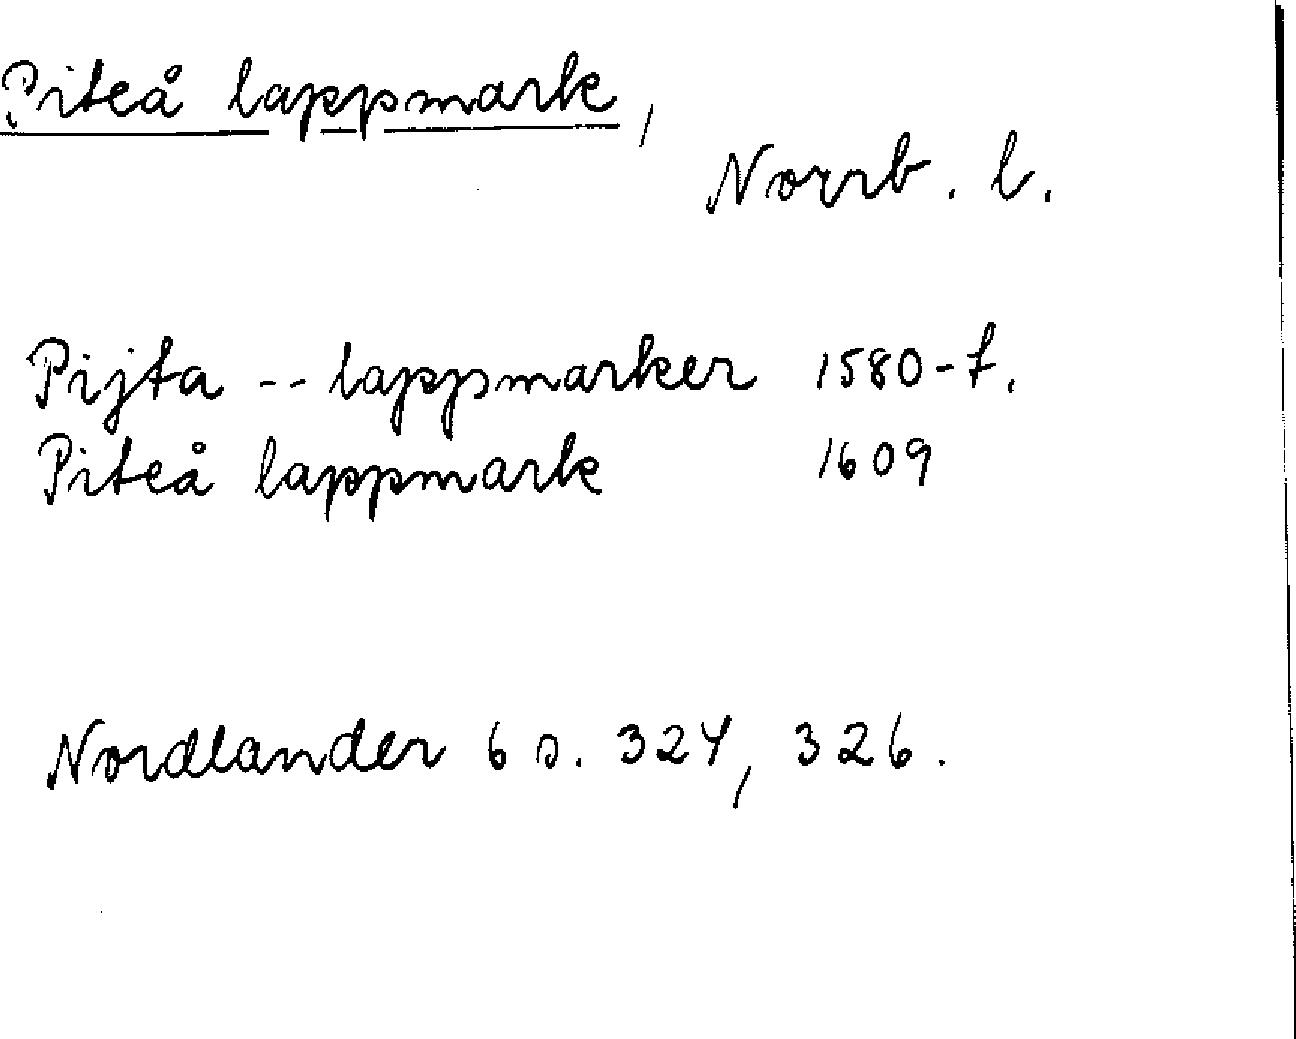 Piteå lappmark,
Norrb. l.
Pijta -- lappmarker 1580-t.
Piteå lappmark 1609
Nordlander 6 s. 324, 326.